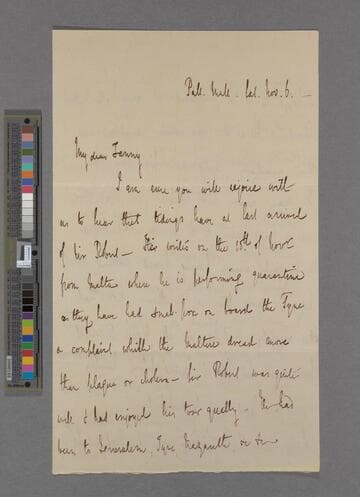 Pall Mall. Sat. Nov. 6.
My dear Fanny
I am sure you will rejoice with
us to hear that tidings have at last arrived
of Sir Robert — He writes on the 15th of
from Malta where he is performing quarantine
as they have had small pox on board the Tyne
a complaint which the Maltese dread more
than plague or cholera — Sir Robert was quite
well & had enjoyed his tour greatly — He had
been to Jerusalem, Tyre Nazareth